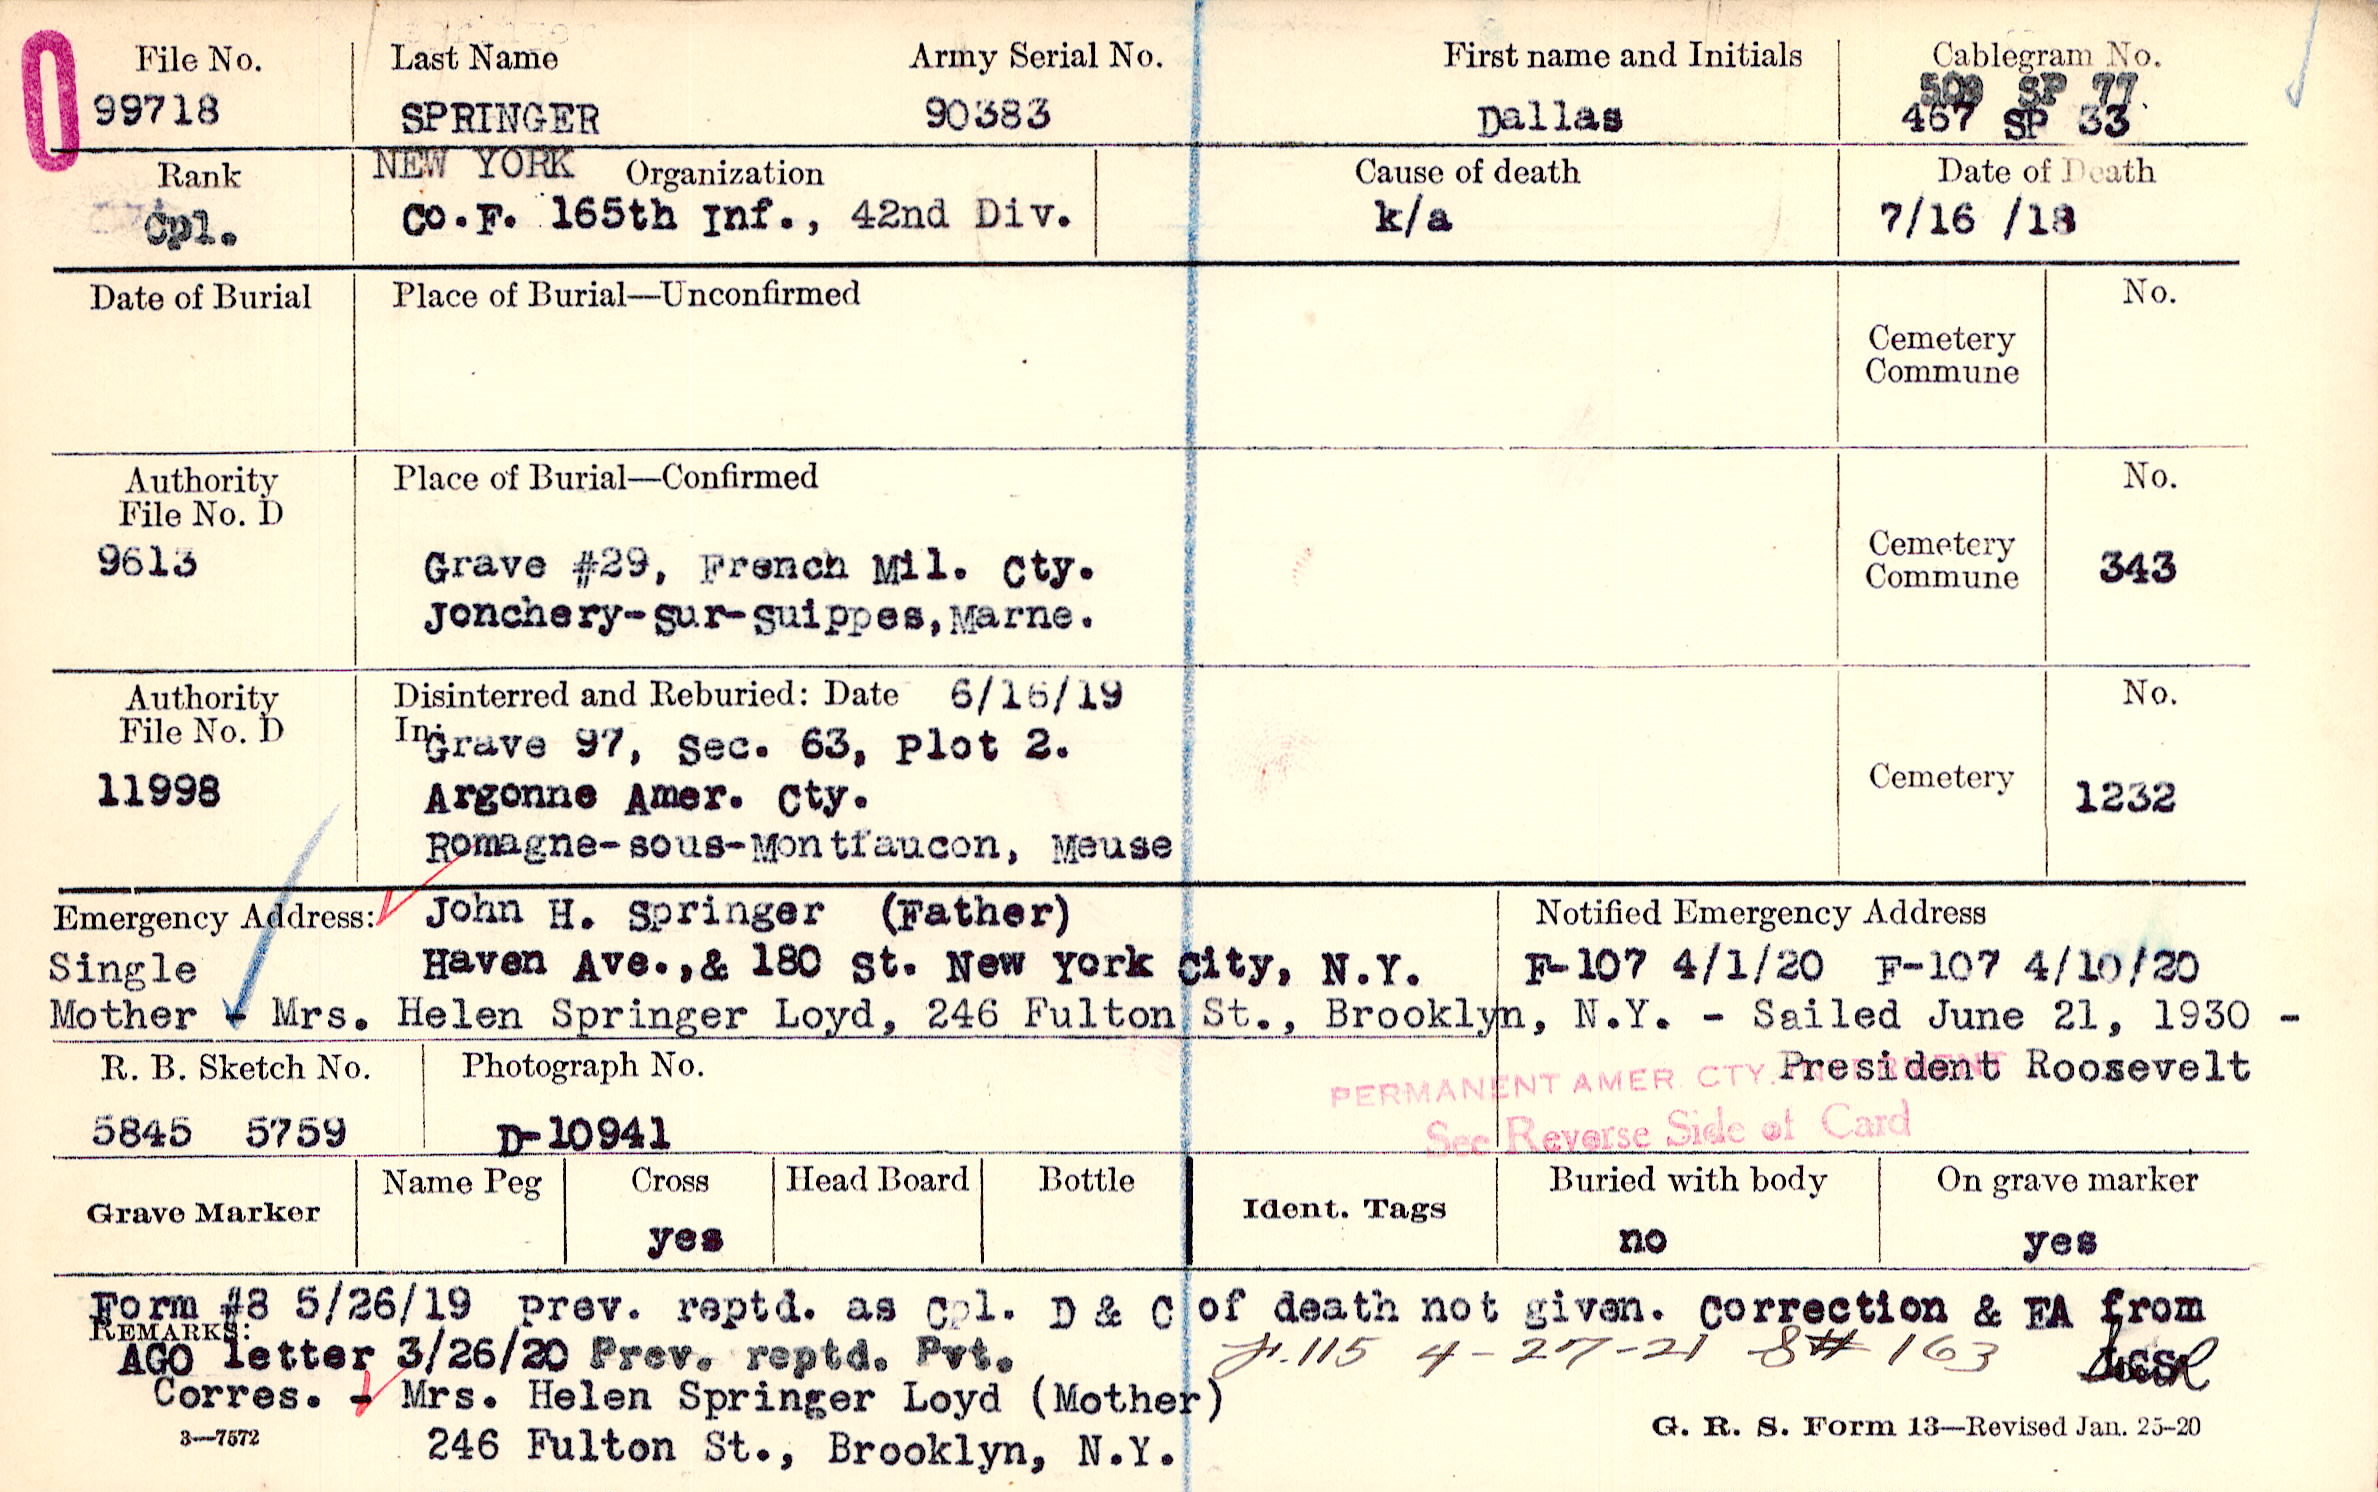 File No. Last Name Army Serial No. First name and Initials Cablegram No.
509 SP 77
99718 SPRINGER 90383 Dallas 467 SP 33
Rank NEW YORK Organization Cause of death Date of Death
Cpl. Co.F. 165th Inf., 42nd Div. k/a 7/16 /18
Date of Burial Place of Burial—Unconfirmed No.
Cemetery
Commune
Authority Place of Burial—Confirmed No.
File No. D
9613 Grave #29, French Mil. Cty. Cemetery 343
Jonchery-sur-Suippes,Marne. Commune
Authority Disinterred and Reburied: Date 6/16/19 No.
File No. D In: Grave 97, Sec. 63, Plot 2.
11998 Argonne Amer. Cty. Cemetery 1232
Romagne-sous-Montfaucon, Meuse
Emergency Address: John H. Springer (Father) Notified Emergency Address
Single Haven Ave.,& 180 St. New York City, N.Y. F-107 4/1/20 F-107 4/10/20
Mother - Mrs. Helen Springer Loyd, 246 Fulton St., Brooklyn, N.Y. - Sailed June 21, 1930 -
R. B. Sketch No. Photograph No. President Roosevelt
PERMANENT AMER. CTY.
5845 5759 D-10941 See Reverse Side of Card
Grave Marker Name Peg Cross Head Board Bottle Ident. Tags Buried with body On grave marker
yes no yes
Form #8 5/26/19 prev. reptd. as Cpl. D & C of death not given. Correction & EA from
REMARKS:
AGO letter 3/26/20 Prev. reptd. Pvt. 115 4-27-21 8# 163
Corres. - Mrs. Helen Springer Loyd (Mother)
3—7572 246 Fulton St., Brooklyn, N.Y. G. R. S. Form 13—Revised Jan. 25-20